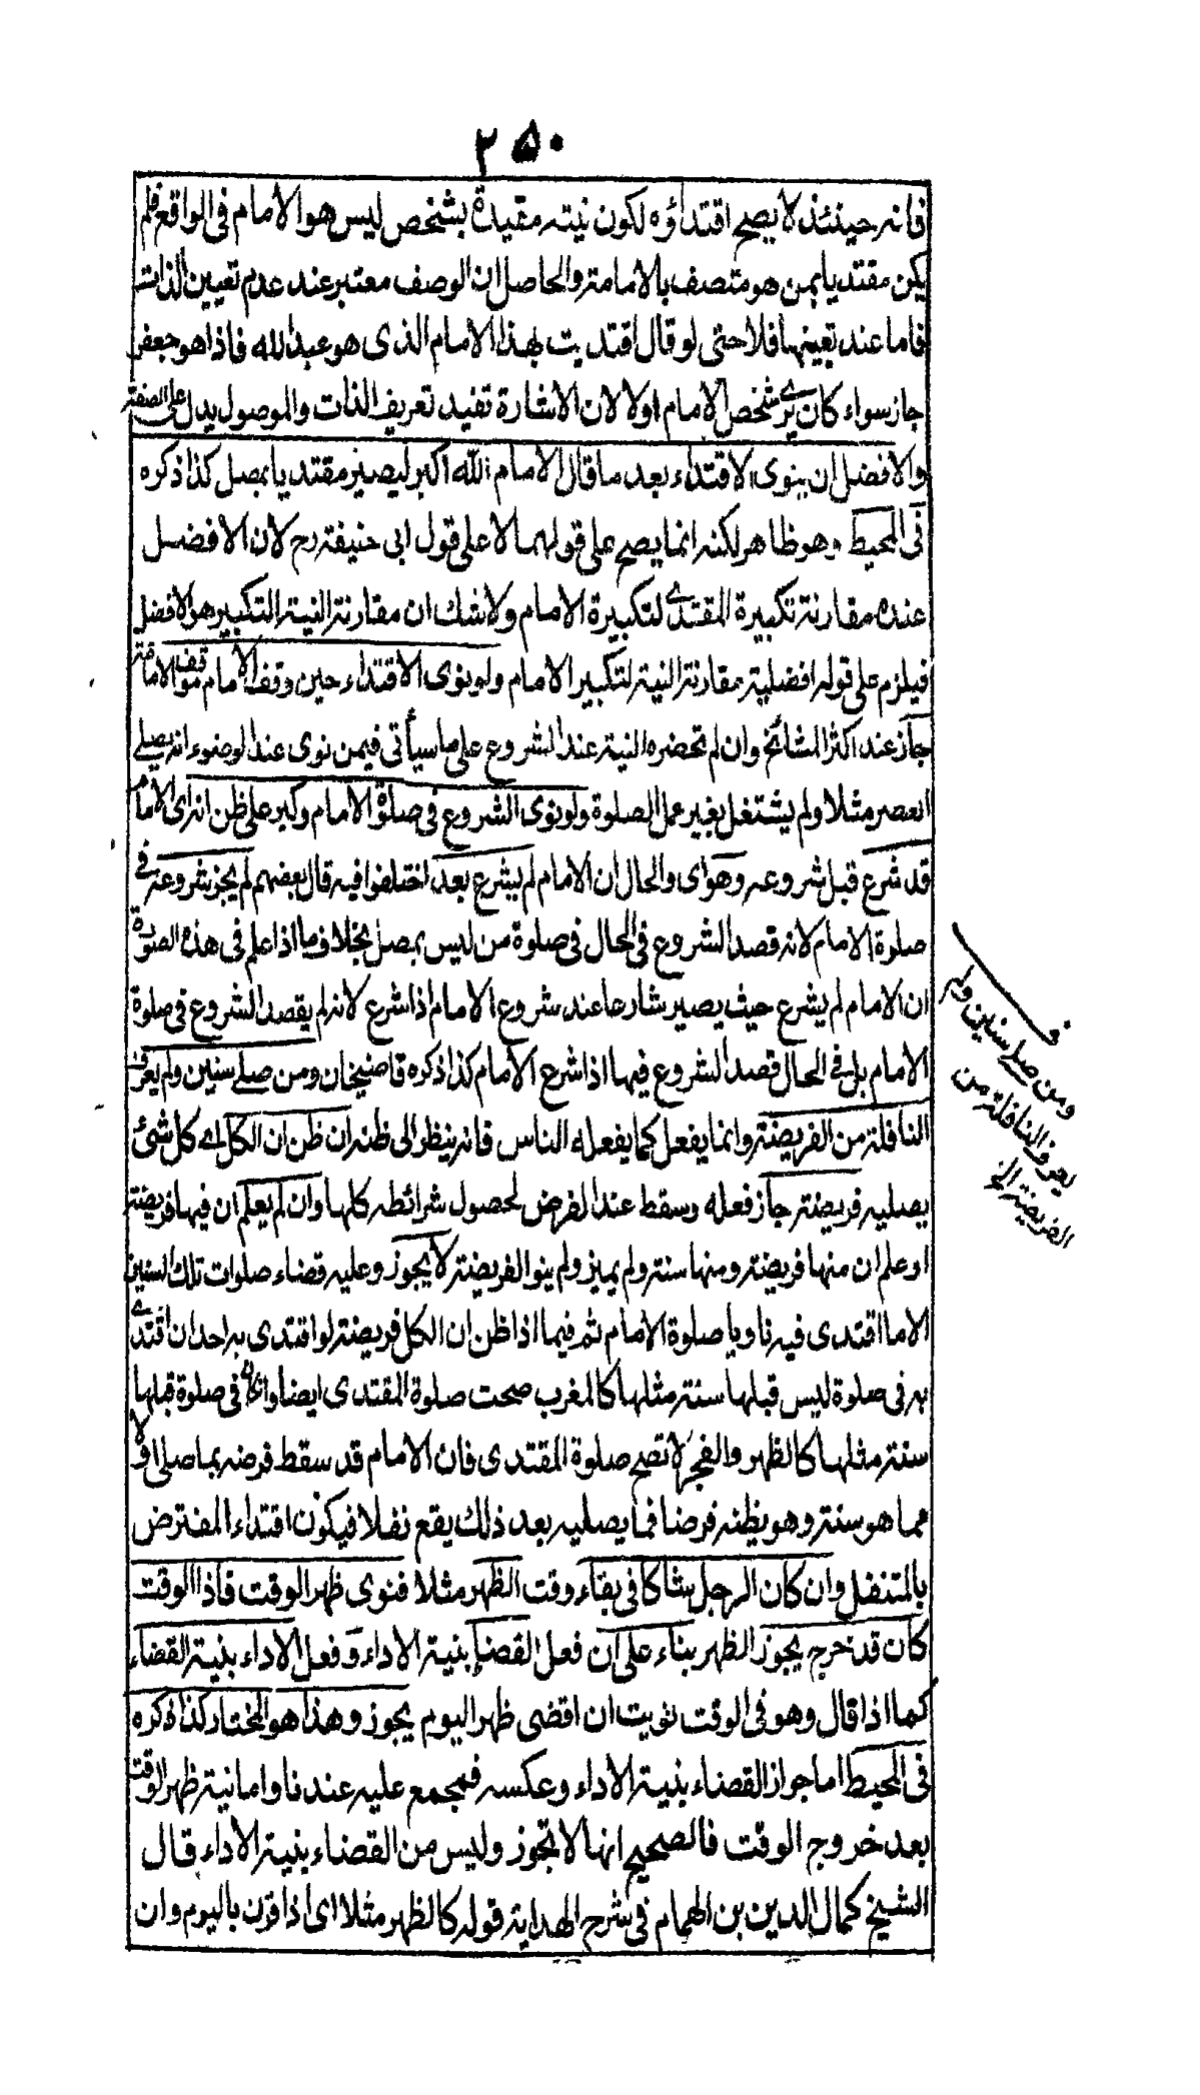 ٢٥٠
فانه حينئذ لا يصح اقتداؤه لكون نيته مقيدة بشخص ليس هو الامام فى الواقع فلم
يكن مقتديا بمن هو متصف بالامامة والحاصل ان الوصف معتبر عند عدم تعيين الذات
فاما عند تعينها فلا حتى لو قال اقتديت بهذا الامام الذى هو عبد الله فاذا هو جعفر
جاز سواء كان يرى شخص الامام اولا لان الاشارة تفيد تعريف الذات والموصول يدل على الصفة
والافضل ان ينوى الاقتداء بعد ما قال الامام الله اكبر ليصير مقتديا بمصل كذا ذكره
فى المحيط وهو ظاهر لكنه انما يصح على قولهما لا على قول ابى حنيفة رح لان الافضل
عنده مقارنة تكبيرة المقتدى لتكبيرة الامام ولا شك ان مقارنة النية التكبير هو الافضل
فيلزم على قوله افضلية مقارنة النية لتكبير الامام ولو نوى الاقتداء حين وقف الامام موقف الامامة
جاز عند اكثر المشائخ وان لم تحضره النية عند الشروع على ما سيأتى فيمن نوى عند الوضوء انه يصلى
العصر مثلا ولم يشتغل بغير عمل الصلوة ولو نوى الشروع فى صلوة الامام وكبر على ظن انه اى الامام
قد شرع قبل شروعه وهو اى والحال ان الامام لم يشرع بعد اختلفوا فيه قال بعضهم لم يجز شروعه فى
صلوة الامام لانه قصد الشروع فى الحال فى صلوة من ليس بمصل بخلاف ما اذا علم فى هذه الصورة
ان الامام لم يشرع حيث يصير شارعا عند شروع الامام اذا شرع لانه لم يقصد الشروع فى صلوة
الامام بل فى الحال قصد الشروع فيها اذا شرع الامام كذا ذكره قاضيخان ومن صلى سنين ولم يعرف
النافلة من الفريضة وانما يفعل كما يفعله الناس فانه ينظر الى ظنه ان ظن ان الكل اى كل شئ
يصليه فريضة جاز فعله وسقط عند الفرض لحصول شرائطه كلها وان لم يعلم ان فيها فريضة
او علم ان منها فريضة ومنها سنة ولم يميز ولم ينو الفريضة لا يجوز وعليه قضاء صلوات تلك السنين
الا ما اقتدى فيه ناويا صلوة الامام ثم فيما اذا ظن ان الكل فريضة لو اقتدى به احد ان اقتدى
به فى صلوة ليس قبلها سنة مثلها كالمغرب صحت صلوة المقتدى ايضا وان كان فى صلوة قبلها
سنة مثلها كالظهر والفجر لا تصح صلوة المقتدى فان الامام قد سقط فرضه بما صلى اولا
مما هو سنة وهو يظنه فرضا فما يصليه بعد ذلك يقع نفلا فيكون اقتداء المفترض
بالمتنفل وان كان الرجل شاكا فى بقاء وقت الظهر مثلا فنوى ظهر الوقت فاذا الوقت
كان قد خرج يجوز الظهر بناء على ان فعل القضاء بنية الاداء وفعل الاداء بنية القضاء
كما اذا قال وهو فى الوقت نويت ان اقضى ظهر اليوم يجوز وهذا هو المختار كذا ذكره
فى المحيط اما جواز القضاء بنية الاداء وعكسه فمجمع عليه عندنا واما نية ظهر الوقت
بعد خروج الوقت فالصحيح انها لا تجوز وليس من القضاء بنية الاداء قال
الشيخ كمال الدين بن الهمام فى شرح الهداية قوله كالظهر مثلا اى اذا قرن باليوم وان
ف
ومن صلى سنين ولم
يعرف النافلة من
الفريضة الخ